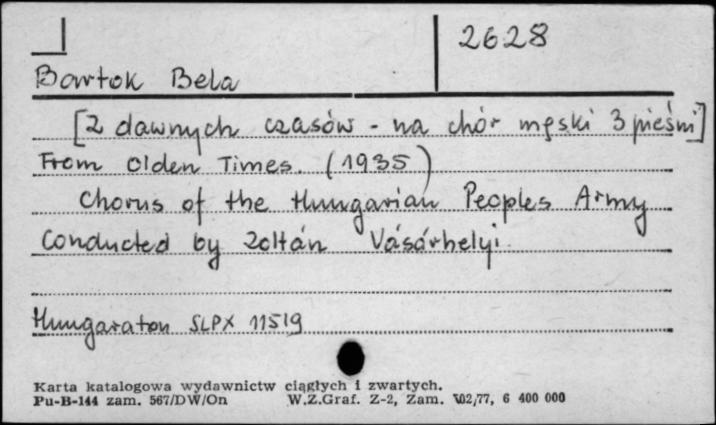 2628
Bartok Bela
[Z dawnych czasów - na chór męski 3 pieśni]
From Olden Times. (1935)
Chorus of the Hungarian Peoples Army
Conducted by Zoltán Vásárhelyi
Hungaraton SLPX 11519
Karta katalogowa wydawnictw ciągłych i zwartych.
Pu-B-144 zam. 567/DW/On W.Z.Graf. Z-2, Zam. 02/77, 6 400 000